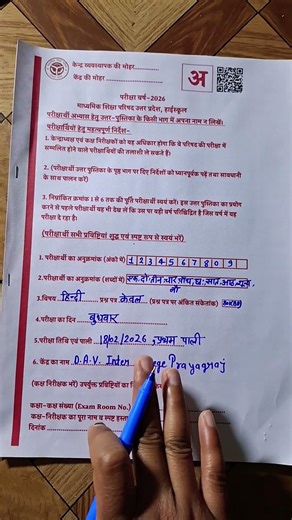 केन्द्र व्यवस्थापक की मोहर
केंद्र की मोहर
अ
परीक्षा वर्ष-2026
माध्यमिक शिक्षा परिषद उत्तर प्रदेश, हाईस्कूल
परीक्षार्थी अभ्यास हेतु उत्तर-पुस्तिका के किसी भाग में अपना नाम न लिखें।
परीक्षार्थियों हेतु महत्वपूर्ण निर्देश-
1. केन्द्राध्यक्ष एवं कक्ष निरीक्षकों को यह अधिकार होगा कि वे परिषद की परीक्षा में
सम्मलित होने वाले परीक्षार्थियों की तलाशी ले सकते हैं।
2. (परीक्षार्थी उत्तर पुस्तिका के पृष्ठ भाग पर दिए निर्देशों को ध्यानपूर्वक पढ़ें तथा सावधानी
के साथ पालन करें)
3. निम्नांकित क्रमांक 1 से 6 तक की पूर्ति परीक्षार्थी स्वयं करें। इस उत्तर पुस्तिका का प्रयोग
करने से पहले परीक्षार्थी यह भी देख लें कि उस पर वही वर्ष परिमुद्रित है जिस वर्ष में यह
परीक्षा दे रहा है।
(परीक्षार्थी सभी प्रविष्टियां शुद्ध एवं स्पष्ट रूप से स्वयं भरें)
1. परीक्षार्थी का अनुक्रमांक (अंको में) 1 2 3 4 5 6 7 8 0 9
2.परीक्षार्थी का अनुक्रमांक (शब्दों में) एक दो तीन चार पाँच छः सात आठ शून्य
नौ
3.विषय हिन्दी प्रश्न पत्र केवल (प्रश्न पत्र पर अंकित संकेतांक)
4. परीक्षा का दिन बुधवार
5. परीक्षा तिथि एवं पाली 18/02/2026 प्रथम पाली
6. केंद्र का नाम D.A.V. Inter ge Prayagraj
(कक्ष निरीक्षक भरें) उपर्युक्त प्रविष्टियों का
कक्षा-कक्ष संख्या (Exam Room No.)
कक्ष-निरीक्षक का पूरा नाम व स्पष्ट
दिनांक